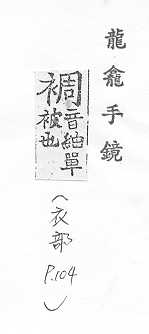 龍龕手鏡
裯音紬單
被也
(衣部
P.104)